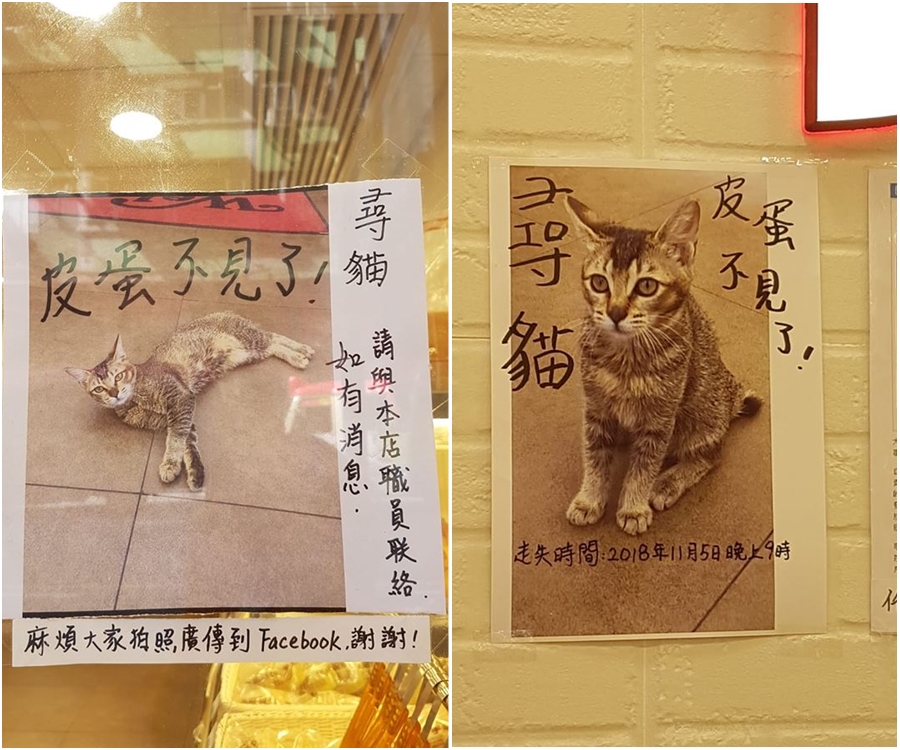 尋貓
皮蛋不見了!
如有消息.
請與本店職員联絡.
麻煩大家拍照,廣傳到 Facebook,謝謝!
尋貓
皮蛋不見了!
走失時間:2018年11月5日晚上9時